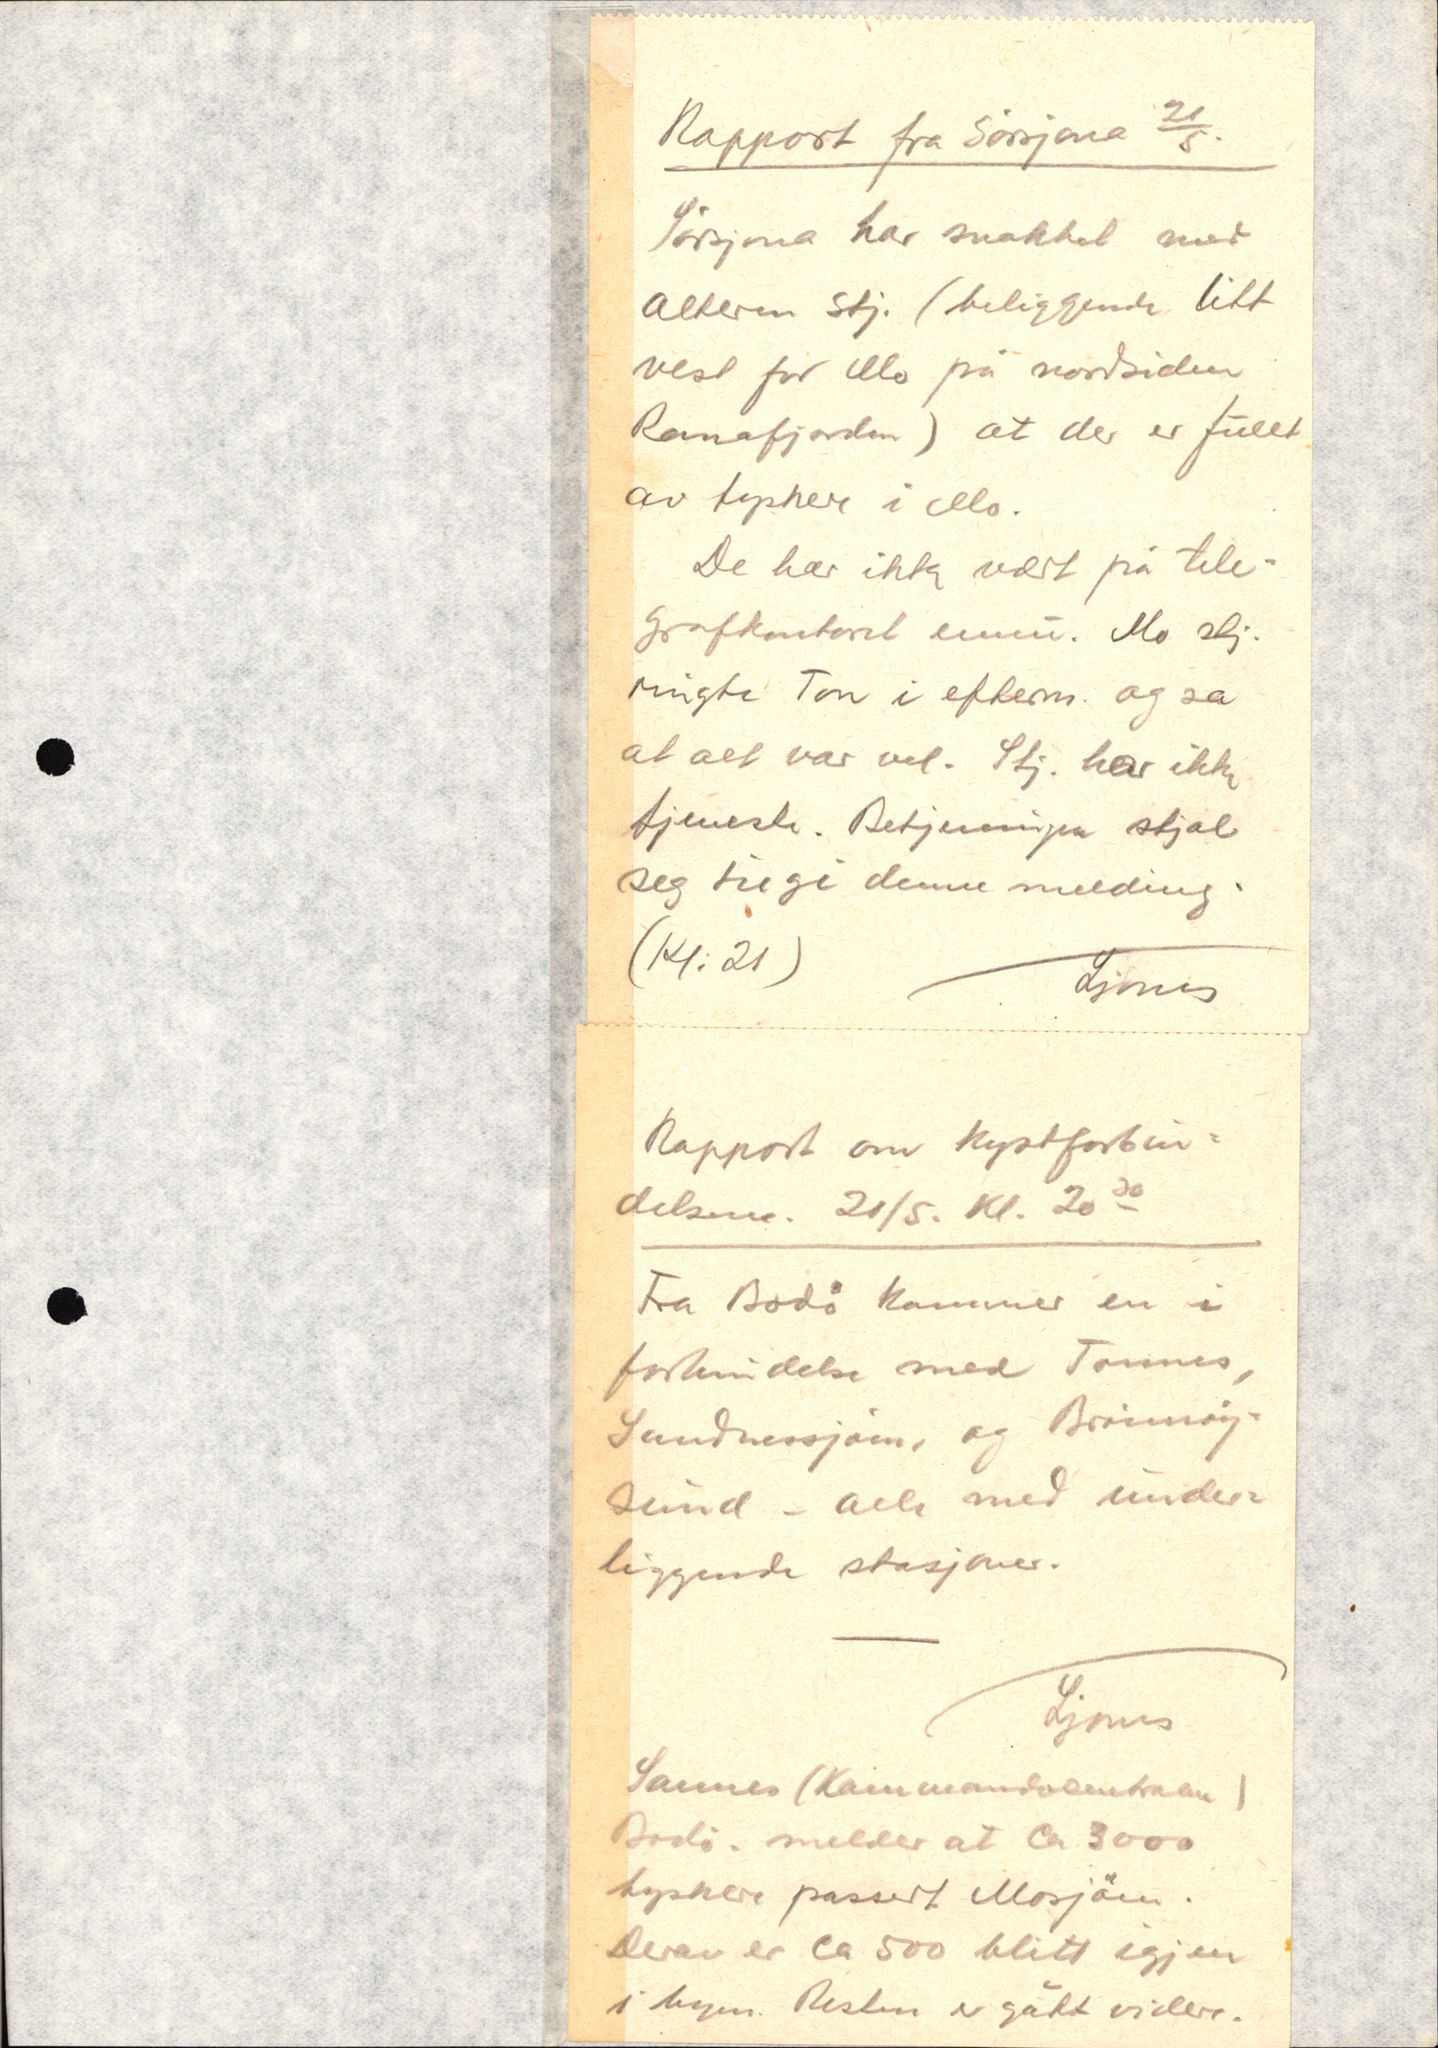 Rapport fra Sörsjona 21/5.
Sörsjona har snakket med
Alteren stj. (beliggende litt
vest for Mo på nordsiden
Ranafjorden) at der er fullt
av tyskere i Mo.
De har ikke vært på tele-
grafkontoret ennu. Mo stj.
ringte Ton i efterm. og sa
at alt var vel. Stj. har ikke
tjeneste. Betjeningen stjal
seg til gi denne melding.
(Kl: 21)
Ljones
Rapport om Kystforbin-
delsene. 21/5. Kl. 20 30
Fra Bodö kommer en i
forbindelse med Tonnes,
Sandnessjöen, og Brönnöy-
sund - alle med under-
liggende stasjoner.
Ljones
Sannes (Kommandocentralen)
Bodö. melder at ca 3000
tyskere passert Mosjöen.
Derav er ca 500 blitt igjen
i byen. Resten er gått videre.